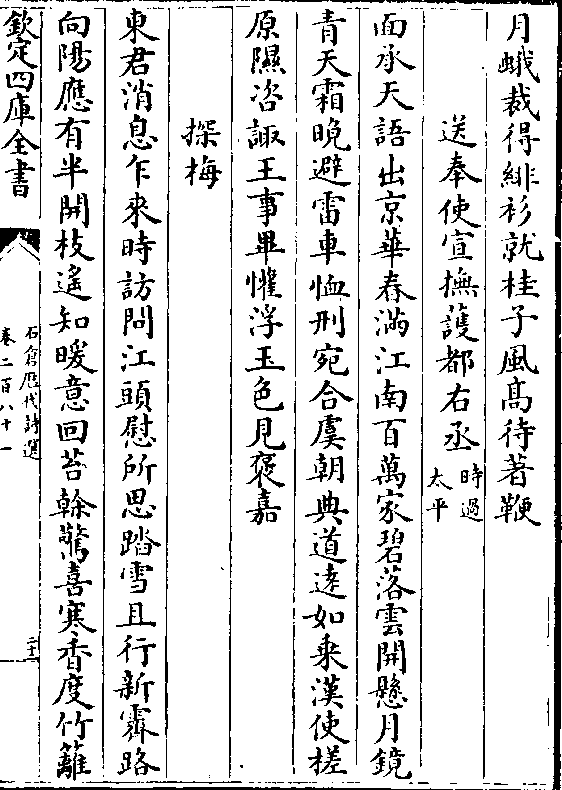 月蛾裁得緋衫就桂子風髙待著鞭
送奉使宣撫䕶都右丞時過太平
面承天語出京華春滿江南百萬家碧落雲開懸月鏡
青天霜晩避雷車恤刑宛合虞朝典道逺如乗漢使槎
原隰咨諏王事畢懽浮玉色見褒嘉
探梅
東君消息乍來時訪問江頭慰所思踏雪且行新霽路
向陽應有半開枝遙知暖意回苔幹驚喜寒香度竹籬
欽定四庫全書
石倉歴代詩選
卷二百八十一